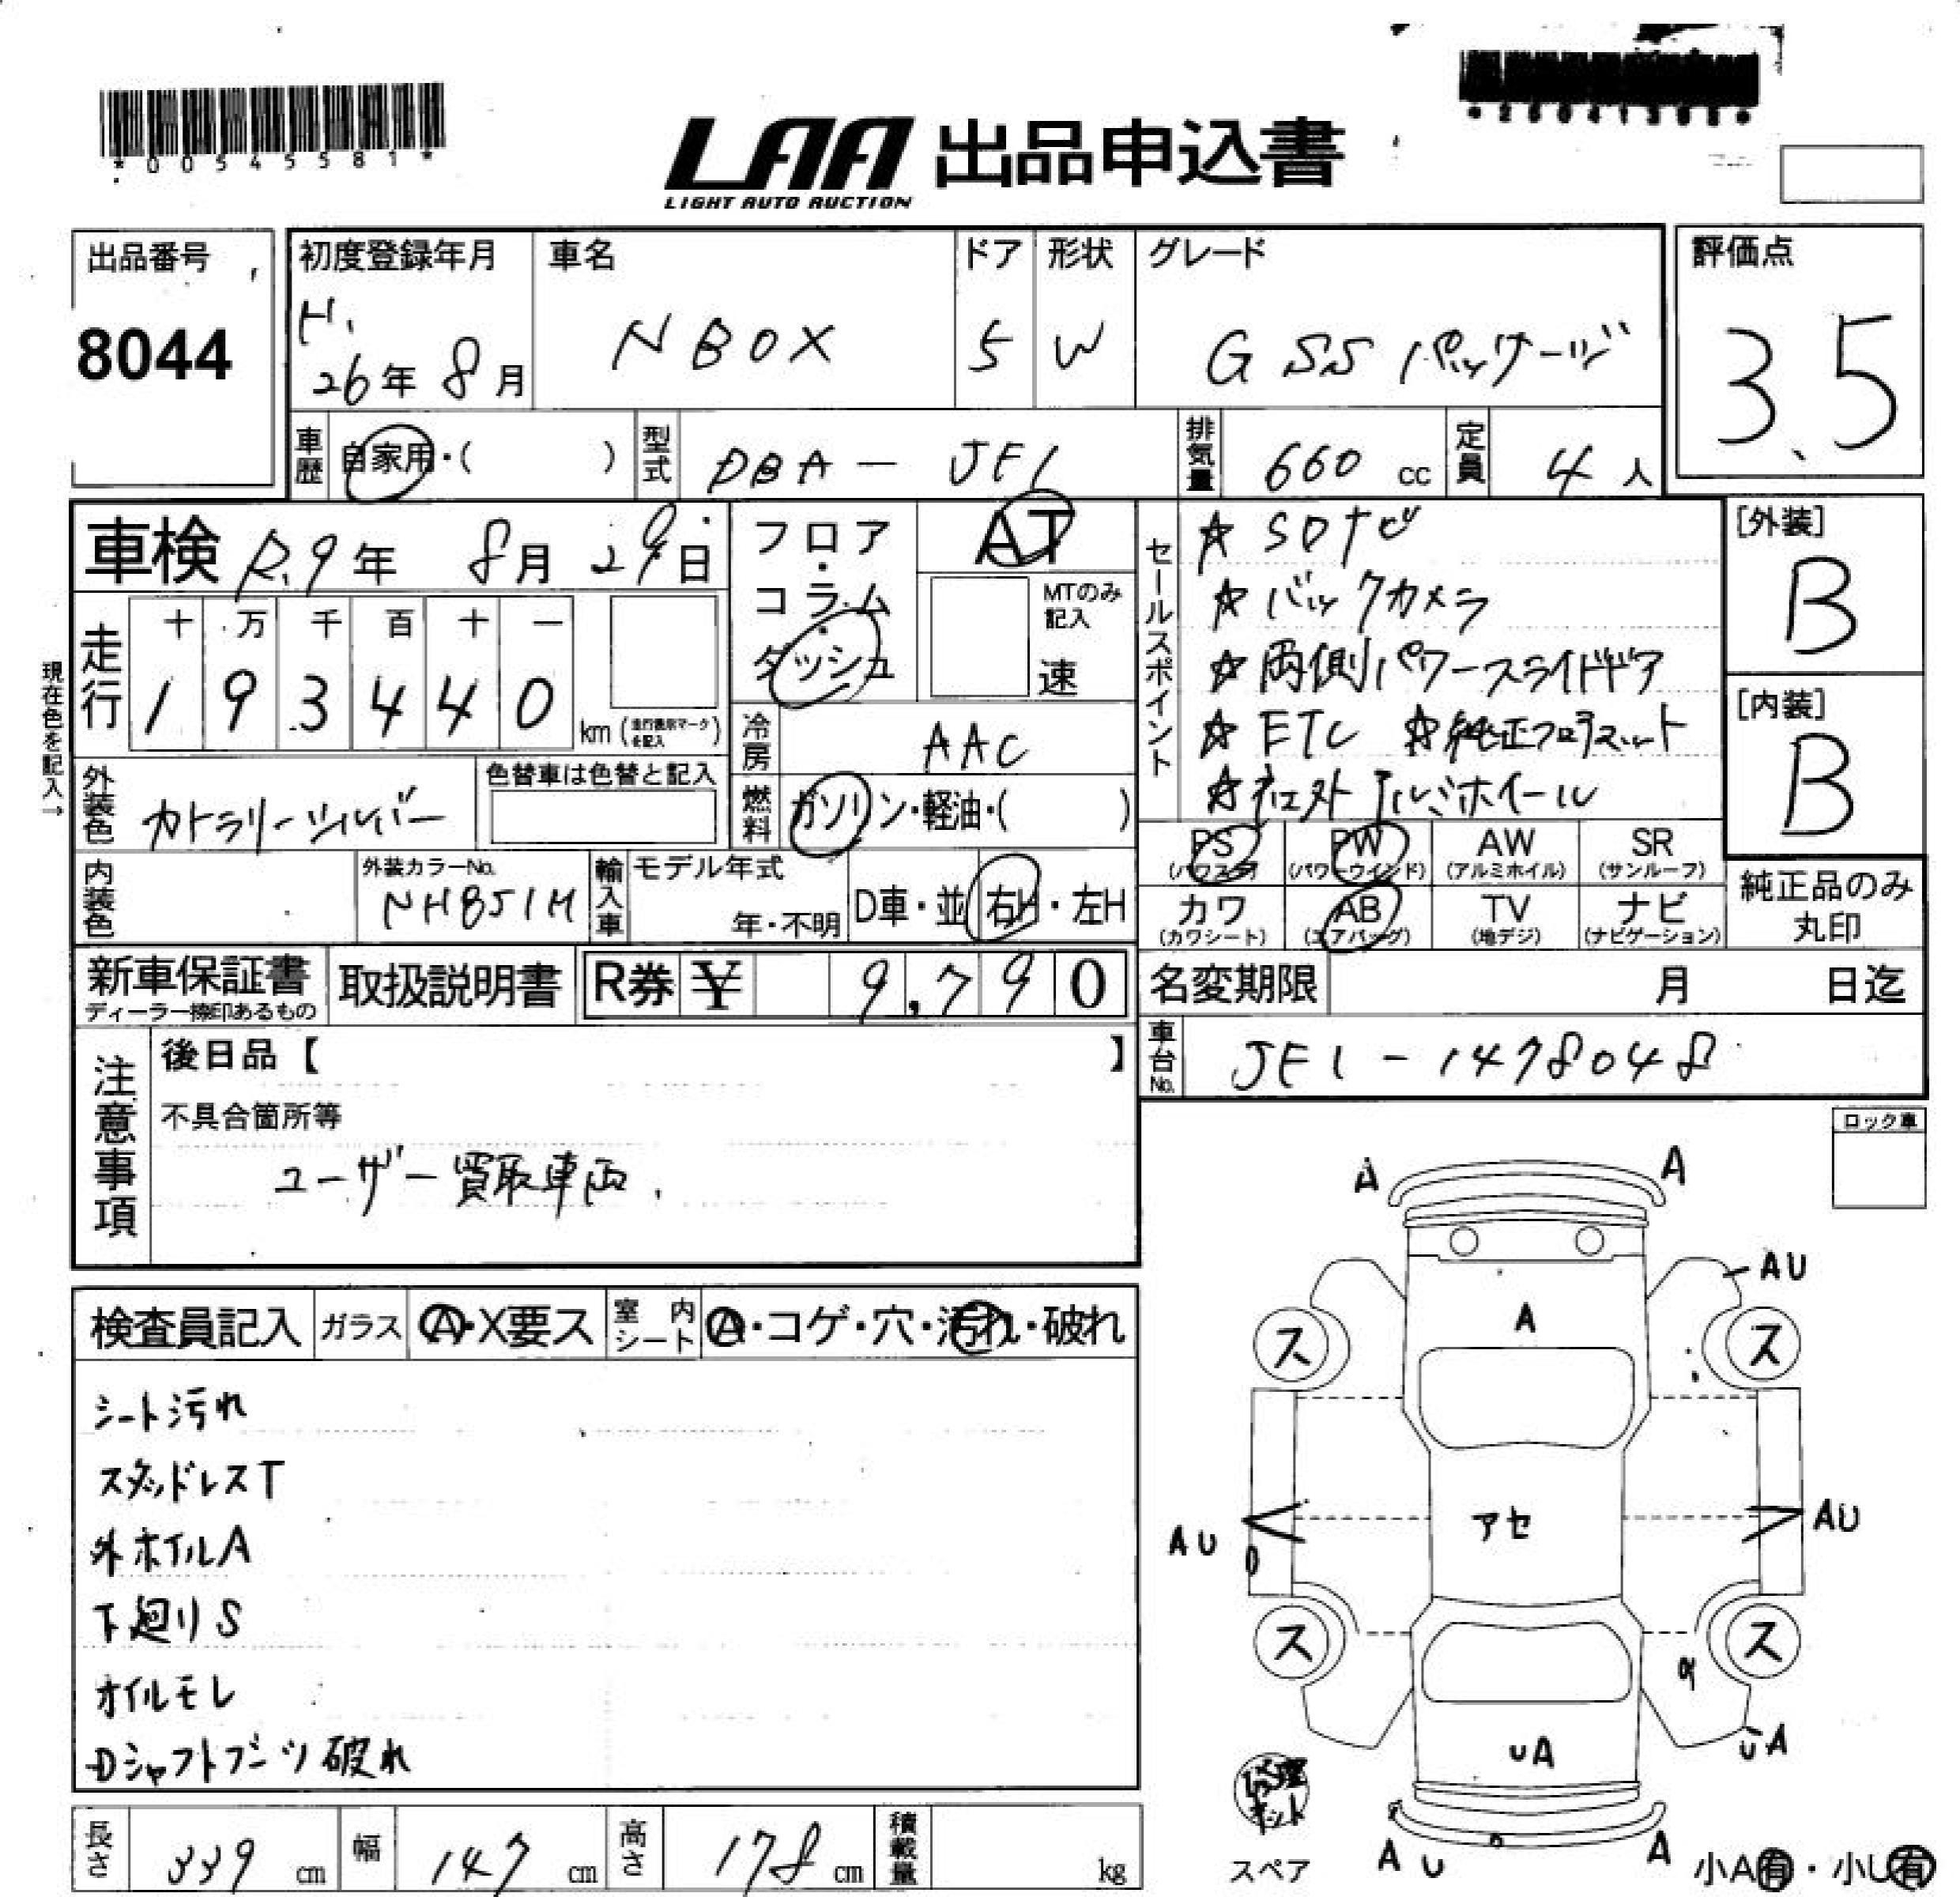 *00545581*
LAA 出品申込書
LIGHT AUTO AUCTION
出品番号
8044
初度登録年月
H.
26年 8月
車名
NBOX
ドア
5
形状
W
グレード
G SSパッケージ
評価点
3.5
車歴
自家用・( )
型式
DBA-JF1
排気量
660 cc
定員
4人
車検 R.9年 8月 29日
フロア・コラム・ダッシュ
AT
MTのみ記入
速
セールスポイント
☆SDナビ
☆バックカメラ
☆両側パワースライドドア
☆ETC ☆純正フロアマット
アルミホイール
[外装]
B
[内装]
B
現在色を記入→
走行
十 万 千 百 十 一
1 9 3 4 4 0
km (走行表示マークを記入)
冷房
AAC
外装色
カトラリーシルバー
色替車は色替と記入
燃料
ガソリン・軽油・( )
PS (パワステ) PW (パワーウインド) AW (アルミホイル) SR (サンルーフ)
カワ (カワシート) AB (エアバッグ) TV (地デジ) ナビ (ナビゲーション)
純正品のみ丸印
内装色
外装カラーNo.
NH851M
輸入車
モデル年式
年・不明
D車・並
右H・左H
新車保証書
ディーラー捺印あるもの
取扱説明書
R券 ¥ 9,790
名変期限 月 日迄
車台No.
JF1-1478048
注意事項
後日品【 】
不具合箇所等
ユーザー買取車両.
ロック車
検査員記入
ガラス
A・X要ス
室内シート
A・コゲ・穴・汚れ・破れ
シート汚れ
スタッドレスT
外ホイルA
下廻りS
オイルモレ
Dシャフトブーツ破れ
A A
AU
A
ス ス
アセ
AU AU
ス ス
UA
UA
修理キット
スペア
A U A
小A有・小U有
長さ 339 cm
幅 147 cm
高さ 178 cm
積載量 kg